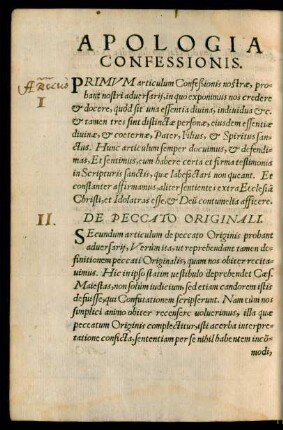 APOLOGIA
CONFESSIONIS.
PRIMVM articulum Confeßionis nostræ, pro-
bant nostri aduersarij, in quo exponimus nos credere
& docere, quòd sit una essentia diuina, indiuidua &c.
& tamen tres sint distinctæ personæ, eiusdem essentiæ
diuinæ, & coeternæ, Pater, Filius, & Spiritus san-
ctus. Hunc articulum semper docuimus, & defendi-
mus, Et sentimus, eum habere certa et firma testimonia
in Scripturis sanctis, quæ labefactari non queant. Et
constanter affirmamus, aliter sentientes extra Ecclesiã
Christi, et Idolatras esse, & Deũ contumelia afficere.
I
II. DE PECCATO ORIGINALI.
SEcundum articulum de peccato Originis probant
aduersarij, Verum ita, ut reprehendant tamen de-
finitionem peccati Originalis, quam nos obiter recita-
uimus. Hic in ipso statim uestibulo deprehendet Cæs.
Maiestas, non solùm iudicium, sed etiam candorem istis
defuisse, qui Confutationem scripserunt. Nam cùm nos
simplici animo obiter recensere uoluerimus, illa quæ
peccatum Originis complectitur, isti acerba interpre-
tatione conficta, sententiam per se nihil habentem incõ-
modi,